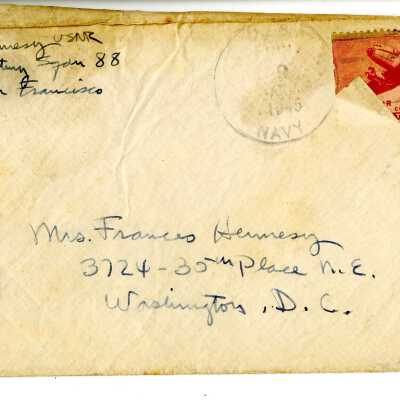 nnesy USNR
Sqdn 88
n Francisco
1945
NAVY
Mrs. Frances Hennesy
3724-35th Place N.E.
Washington, D.C.